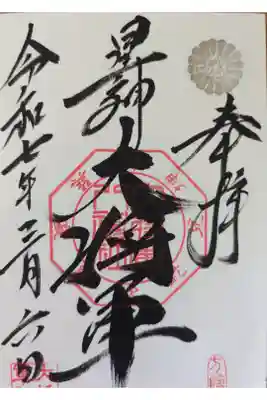 奉拝
星神
大将軍
令和七年三月六日